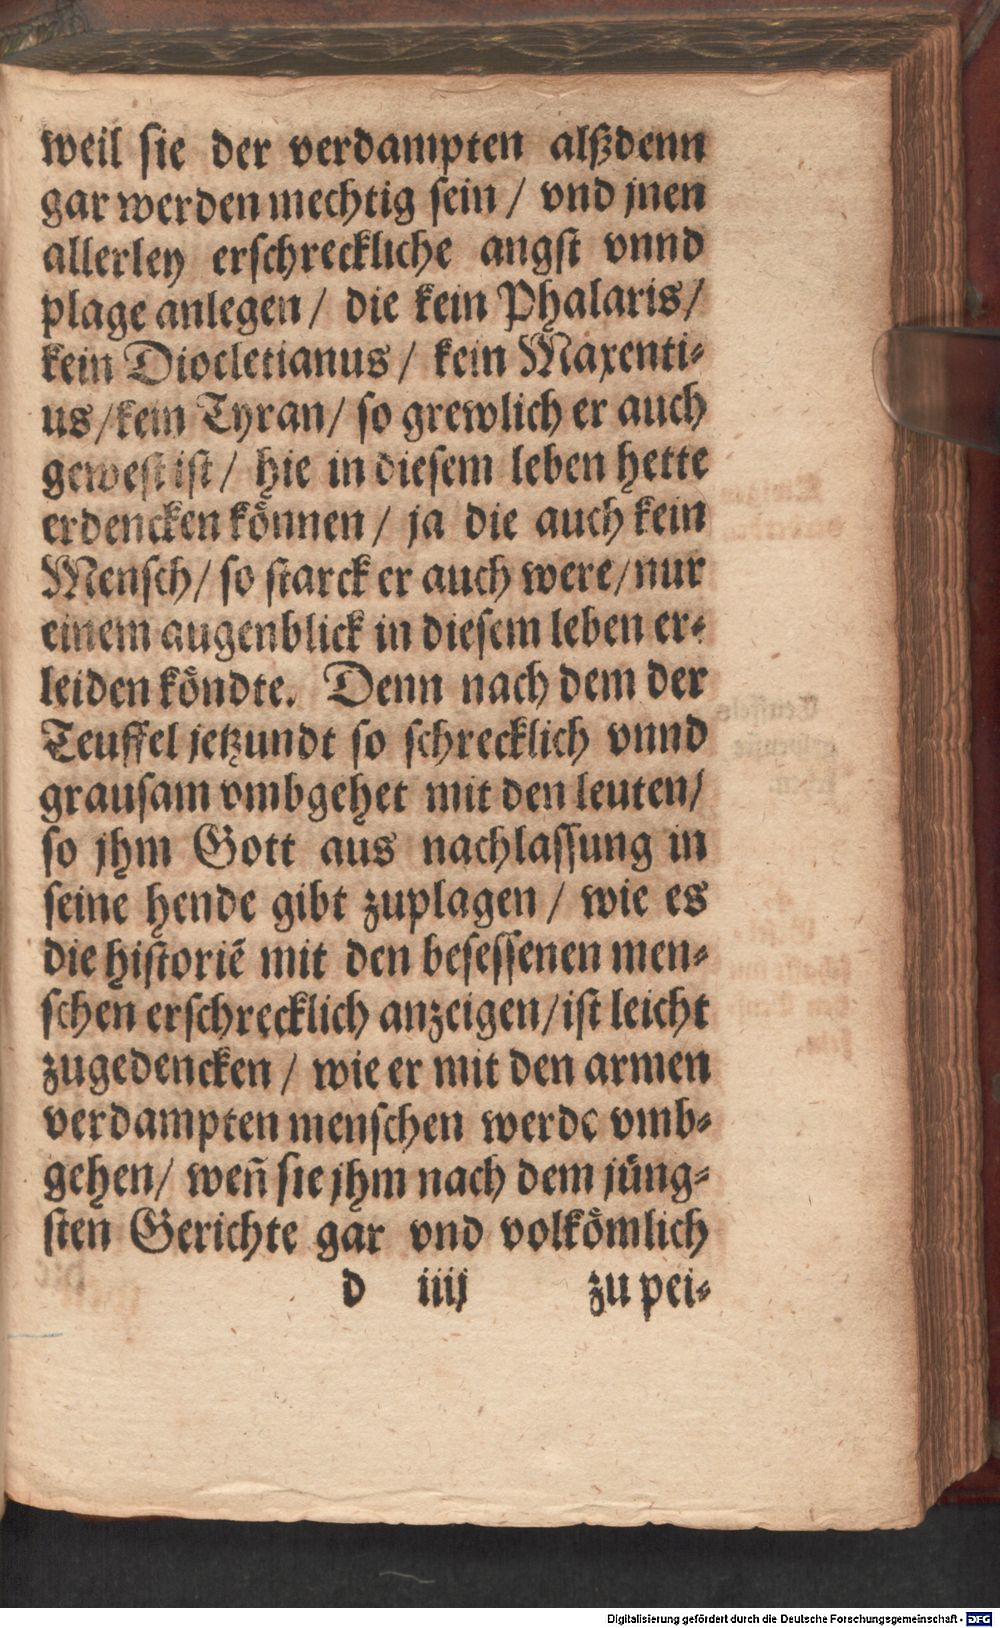 weil sie der verdampten alßdenn
gar werden mechtig sein / vnd jnen
allerley erschreckliche angst vnnd
plage anlegen / die kein Phalaris /
kein Diocletianus / kein Maxenti⸗
us / kein Tyran / so grewlich er auch
gewest ist / hie in diesem leben hette
erdencken können / ja die auch kein
Mensch / so starck er auch were / nur
einem augenblick in diesem leben er⸗
leiden köndte. Denn nach dem der
Teuffel jetzundt so schrecklich vnnd
grausam vmbgehet mit den leuten /
so jhm Gott aus nachlassung in
seine hende gibt zuplagen / wie es
die historiẽ mit den besessenen men⸗
schen erschrecklich anzeigen / ist leicht
zugedencken / wie er mit den armen
verdampten menschen werde vmb⸗
gehen / weñ sie jhm nach dem jüng⸗
sten Gerichte gar vnd volkömlich
d iiij zu pei⸗
Digitalisierung gefördert durch die Deutsche Forschungsgemeinschaft - DFG